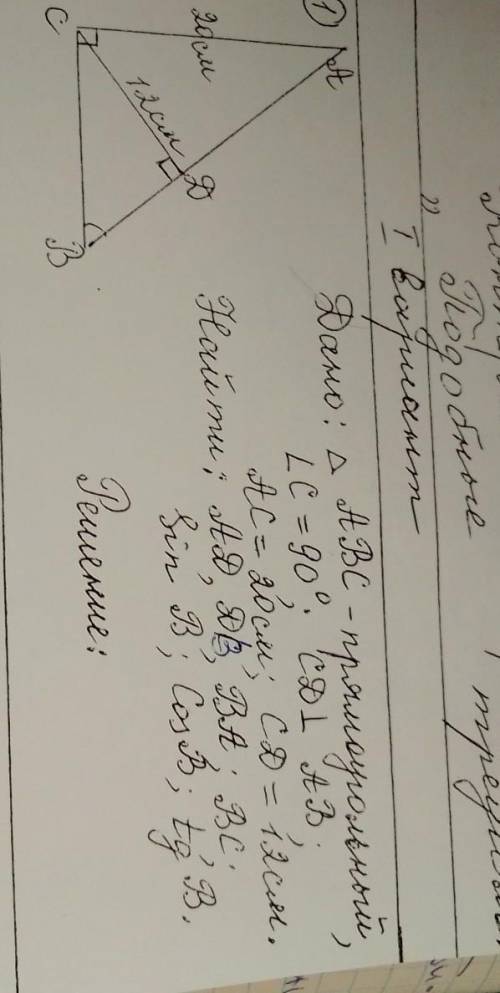 Подобные
I вариант
1)
A
20см
12см
D
C
B
Дано: △ ABC - прямоугольный,
∠C = 90°. CD ⊥ AB.
AC = 20см; CD = 12см.
Найти: AD, DB, BA, BC.
Sin B; Cos B; tg B.
Решение: